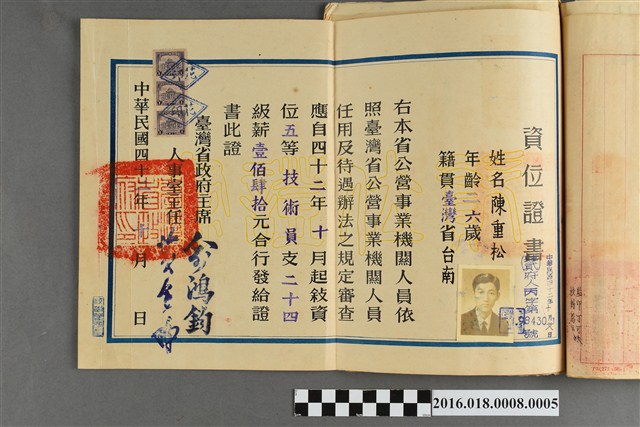 資位證書
姓名陳重松
年齡二六歲
籍貫臺灣省台南
右本省公營事業機關人員依
照臺灣省公營事業機關人員
任用及待遇辦法之規定審查
應自四十二年十月起敘資
位五等技術員支二十四
級薪壹佰肆拾元合行發給證
書此證
臺灣省政府主席
俞鴻鈞
人事室主任
中華民國四十 年 月 日
府人丙字第
8430
號
2016.018.0008.0005